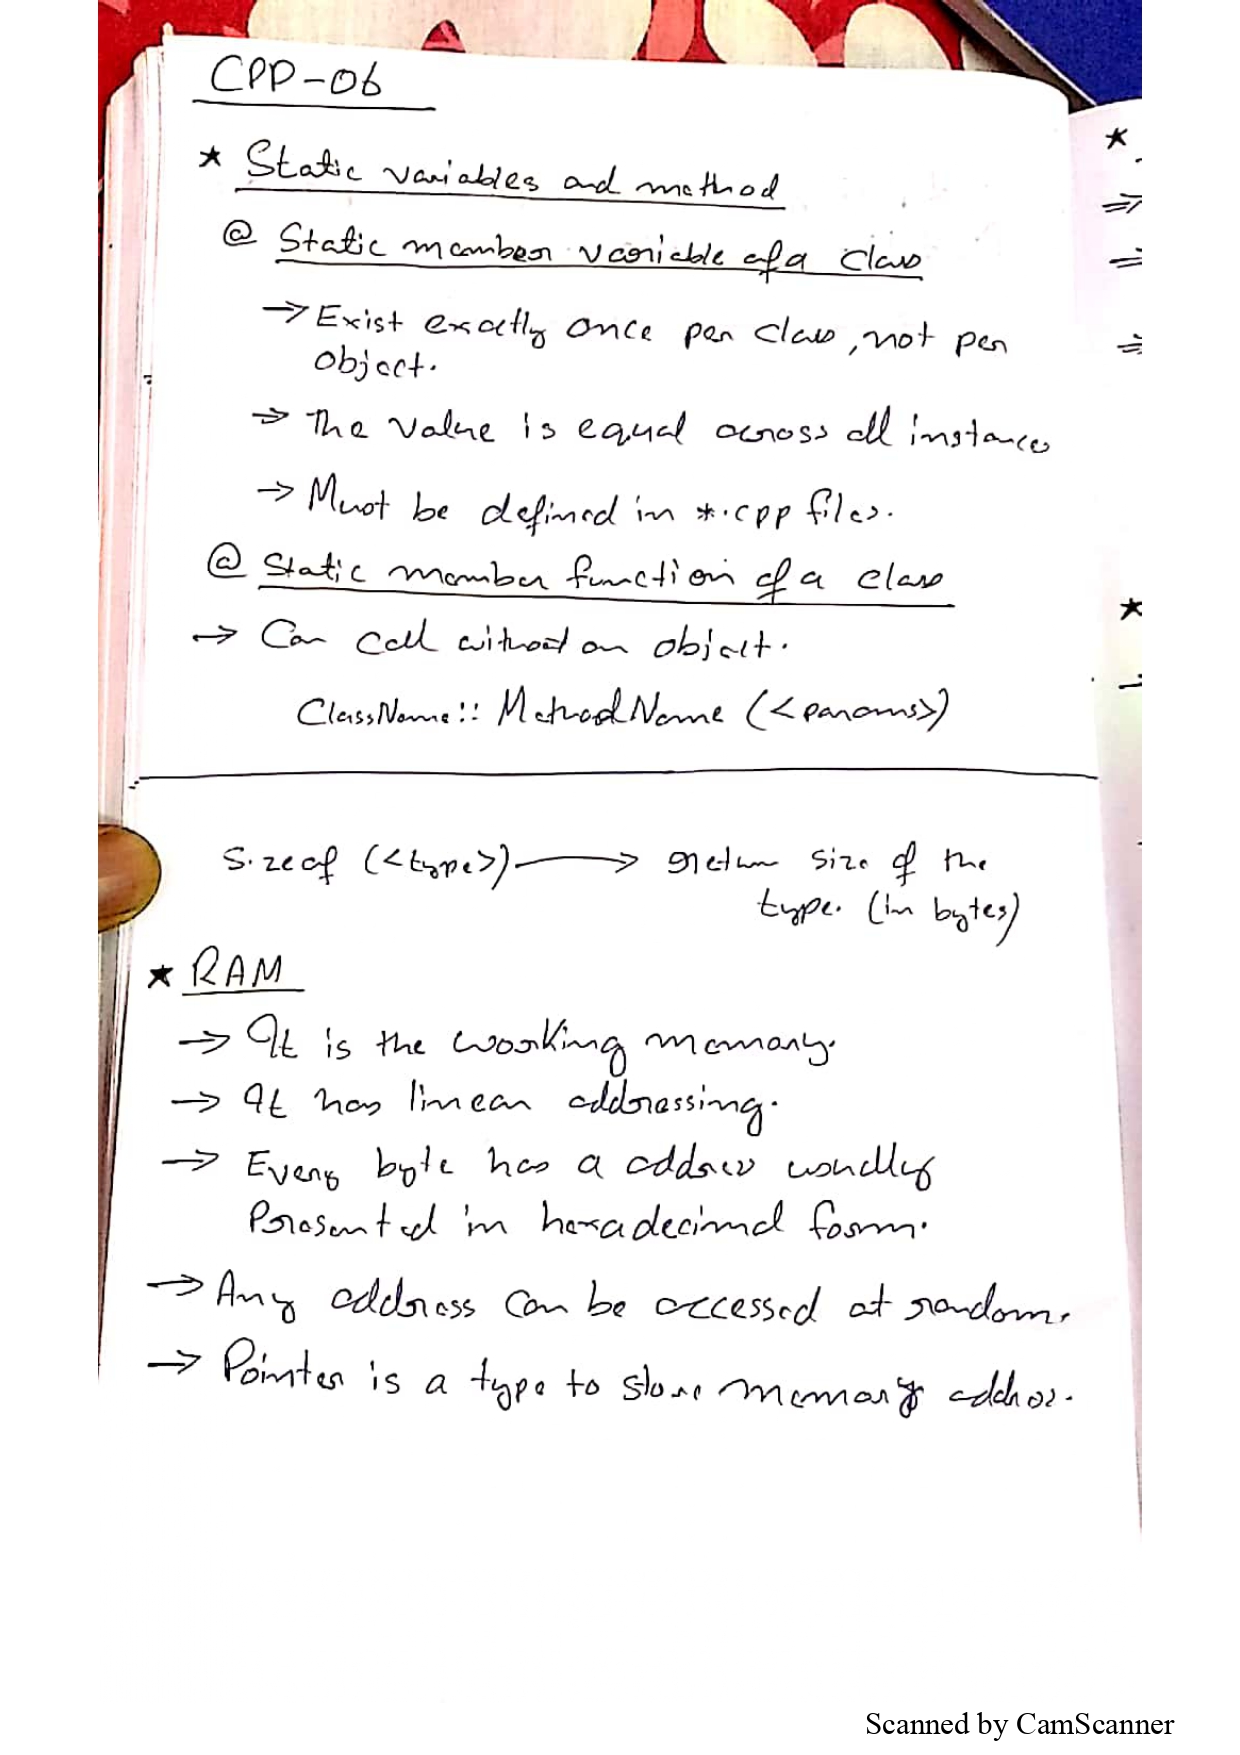 CPP-06
★ Static variables and method
@ Static member variable of a class
→ Exist exactly once per class, not per
object.
→ The value is equal across all instances
→ Must be defined in *.cpp files.
@ Static member function of a class
→ Can call without an object.
ClassName:: MethodName (<params>)
Sizeof (<type>) → return size of the
type. (in bytes)
★ RAM
→ It is the working memory.
→ It has linear addressing.
→ Every byte has a address usually
Presented in hexadecimal form.
→ Any address can be accessed at random.
→ Pointer is a type to store memory address.
Scanned by CamScanner